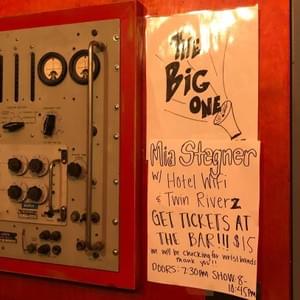 THE
BiG
ONE
Mia Stegner
W/ Hotel Wifi
& Twin Riverz
GET TICKETS AT
THE BAR!!! $15
we will be checking for wristbands
thank you!!
DOORS: 7:30PM SHOW 8-
10:45PM